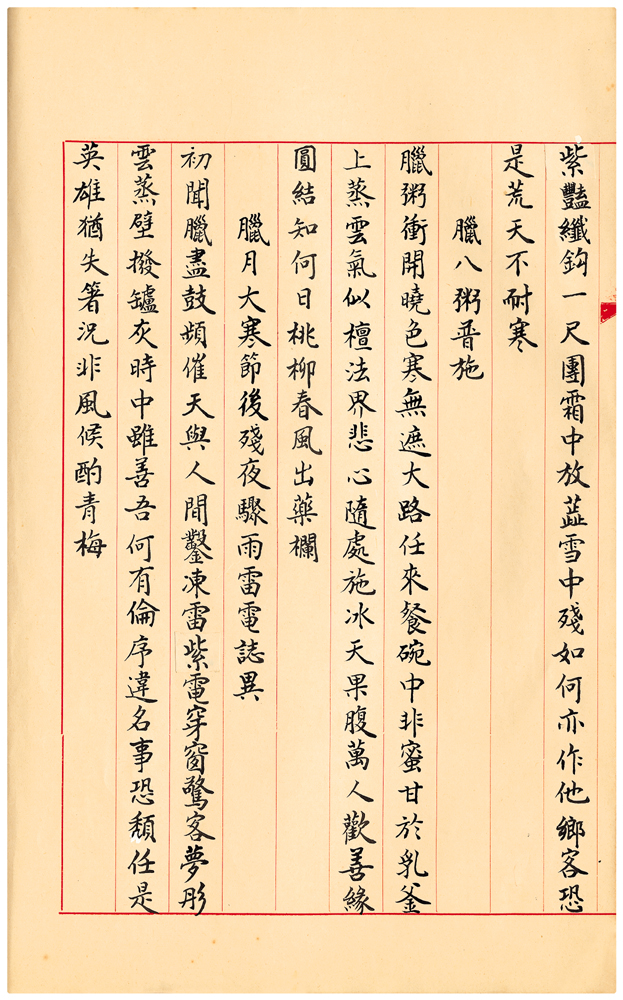 紫豔纖鈎一尺團霜中放蕋雪中殘如何亦作他鄉客恐
是荒天不耐寒
臘八粥普施
臘粥衝開曉色寒無遮大路任來餐碗中非蜜甘於乳釜
上蒸雲氣似檀法界悲心隨處施冰天果腹萬人歡善緣
圓結知何日桃柳春風出藥欄
臘月大寒節後殘夜驟雨雷電誌異
初聞臘盡鼓頻催天與人間鑿凍雷紫電穿窗驚客夢彤
雲蒸壁撥罏灰時中雖善吾何有倫序違名事恐頹任是
英雄猶失箸況非風候酌青梅